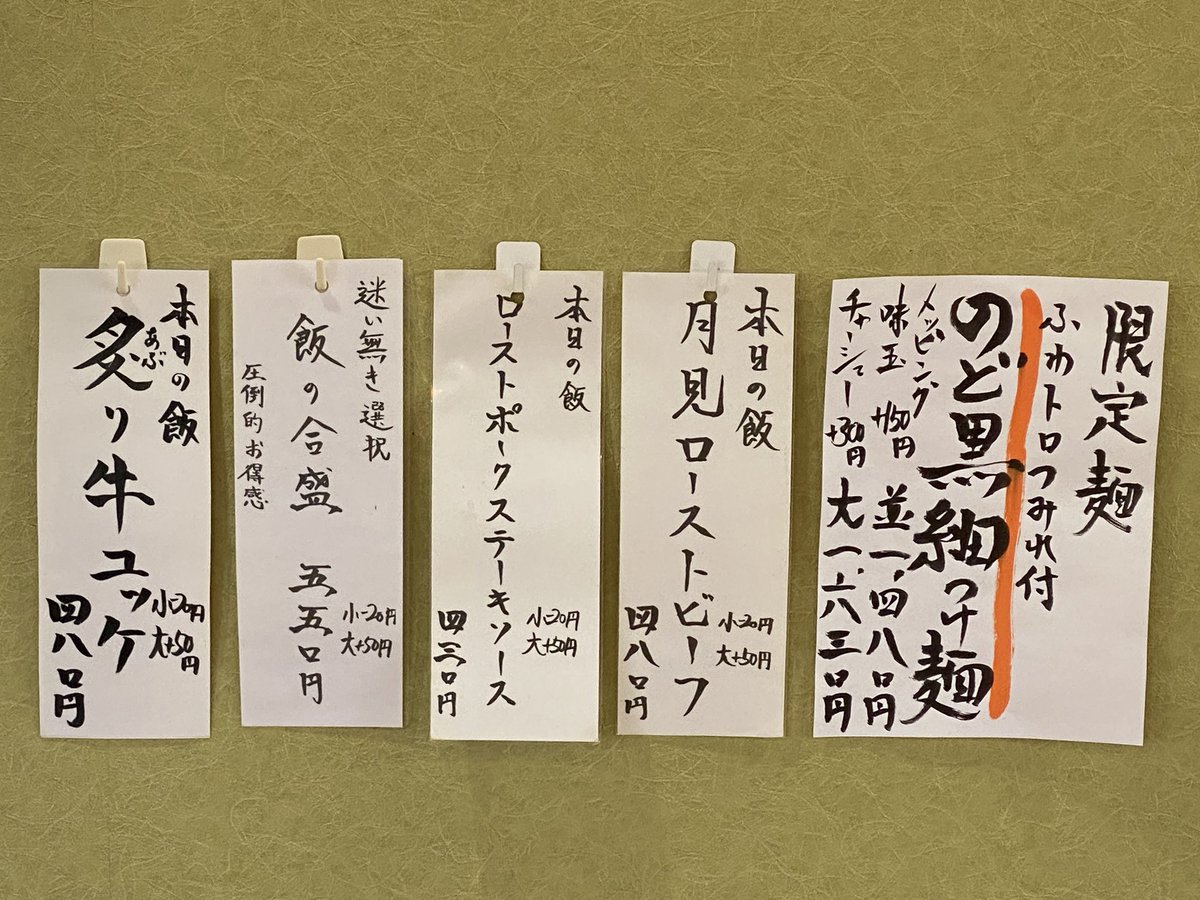 限定麺
ふわトロつみれ付
のど黒細つけ麺
トッピング
味玉 +150円
チャーシュー +300円
並一、四八〇円
大一、六三〇円
本日の飯
月見ローストビーフ
小-20円
大+50円
四八〇円
本日の飯
ローストポークステーキソース
小-20円
大+50円
四三〇円
迷い無き選択
飯の合盛 五五〇円
小-20円
大+50円
圧倒的お得感
本日の飯
炙り牛ユッケ
あぶ
小-20円
大+50円
四八〇円